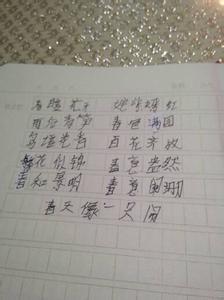 鸟语花香 姹紫嫣红
雨后春笋 春色满园
鸟语花香 百花齐放
繁花似锦 春意盎然
春和景明 春意阑珊
春天像一只